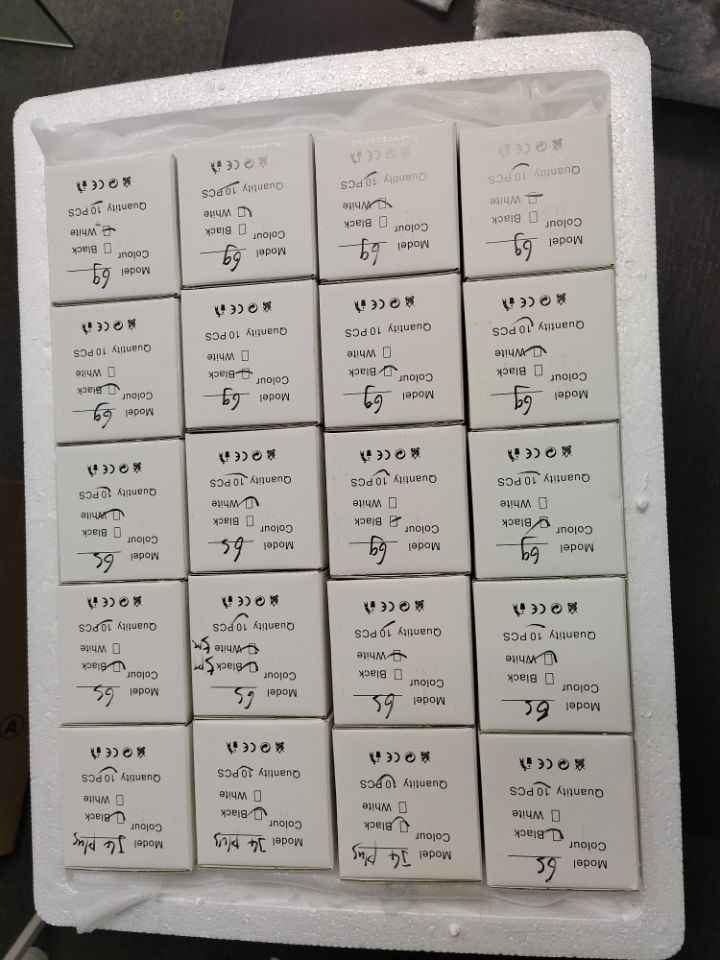 Model 6S
Colour
Black
White
Quantity 10 PCS
CE
Model J4 plus
Colour
Black
White
Quantity 10 PCS
CE
Model J4 plus
Colour
Black
White
Quantity 10 PCS
CE
Model J4 plus
Colour
Black
White
Quantity 10 PCS
CE
Model 6S
Colour
Black
White
Quantity 10 PCS
CE
Model 6S
Colour
Black
White
Quantity 10 PCS
CE
Model 6S
Colour
Black
White
Quantity 10 PCS
CE
Model 6S
Colour
Black
White
Quantity 10 PCS
CE
Model 6g
Colour
Black
White
Quantity 10 PCS
CE
Model 6g
Colour
Black
White
Quantity 10 PCS
CE
Model 6S
Colour
Black
White
Quantity 10 PCS
CE
Model 6S
Colour
Black
White
Quantity 10 PCS
CE
Model 6g
Colour
Black
White
Quantity 10 PCS
CE
Model 6g
Colour
Black
White
Quantity 10 PCS
CE
Model 6g
Colour
Black
White
Quantity 10 PCS
CE
Model 6g
Colour
Black
White
Quantity 10 PCS
CE
Model 6g
Colour
Black
White
Quantity 10 PCS
CE
Model 6g
Colour
Black
White
Quantity 10 PCS
CE
Model 6g
Colour
Black
White
Quantity 10 PCS
CE
Model 6g
Colour
Black
White
Quantity 10 PCS
CE